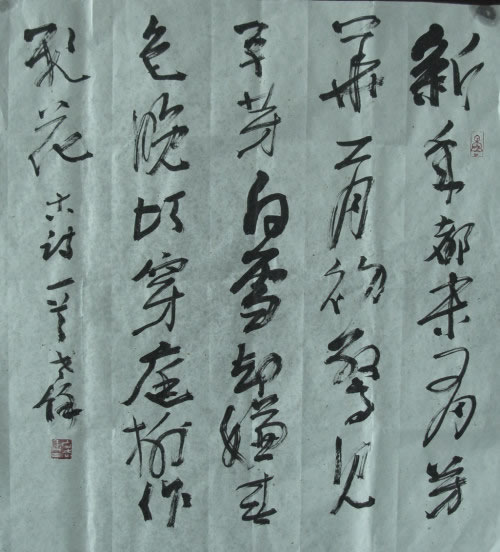 新年都未有芳
華二月初驚見
草芽白雪却嫌春
色晚故穿庭樹作
飛花 古詩一首